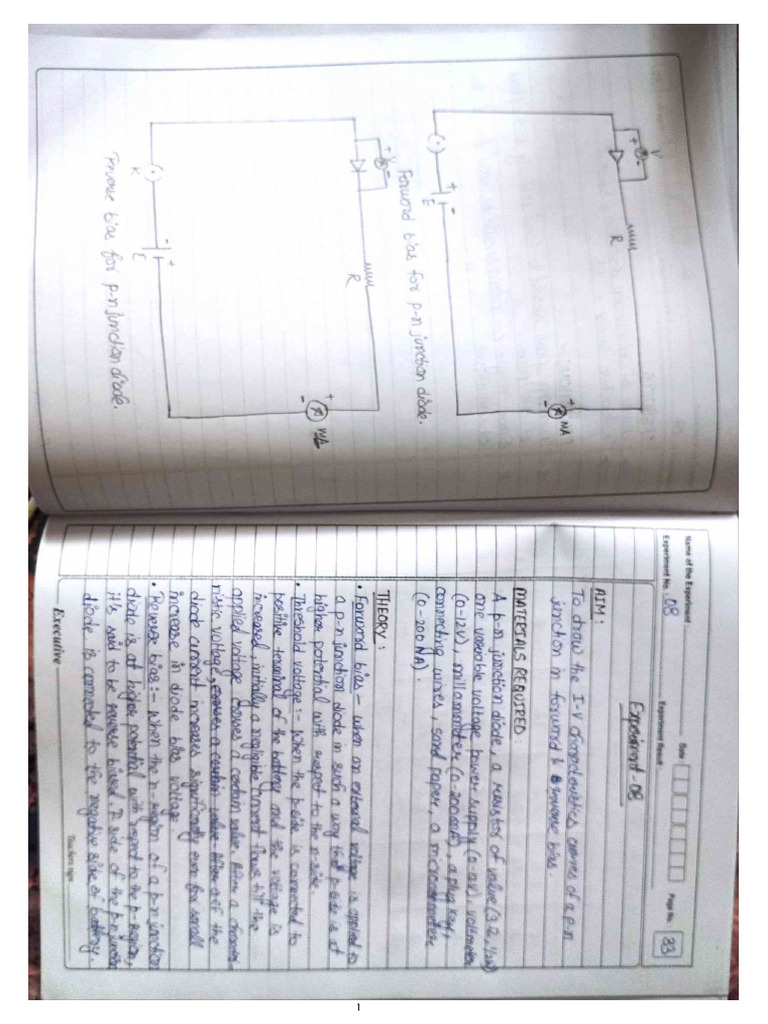 V
+ -
R
+ -
E
+
-
MA
Forword bias for p-n junction diode.
+V-
R
K
- +
E
+
-
MA
reverse bias for p-n junction diode.
Name of the Experiment
Date
Page No. 23
Experiment No. 08
Experiment Result
Experiment - 08
AIM:
To draw the I-V characteristics curves of a p-n
junction in forward & reverse bias.
MATERIALS REQUIRED:
A p-n junction diode, a resistor of value (3 Ω, 1/2W)
one variable voltage power supply (0-12V), voltmeter
(0-12V), miliammeter (0-200mA), a plug key,
connecting wires, sand paper, a microammeter
(0-200 NA).
THEORY:
• Forword bias :- when an external voltage is applied to
a p-n junction diode in such a way that p-side is at
higher potential with respect to the n-side.
• Threshold voltage :- when the p-side is connected to
positive terminal of the battery and the voltage is
increased, initially a negligible current flows till the
applied voltage crosses a certain value. After a charac-
ristic voltage, crosses a certain value. After a of the
diode current increases significantly even for small
increase in diode bias voltage
• Reverse bias :- when the n-region of a p-n junction
diode is at higher potential with respect to the p-region,
it's said to be reverse biased. P side of the p-n junction
diode is connected to the negative side of battery.
Executive
Teachers sign
1